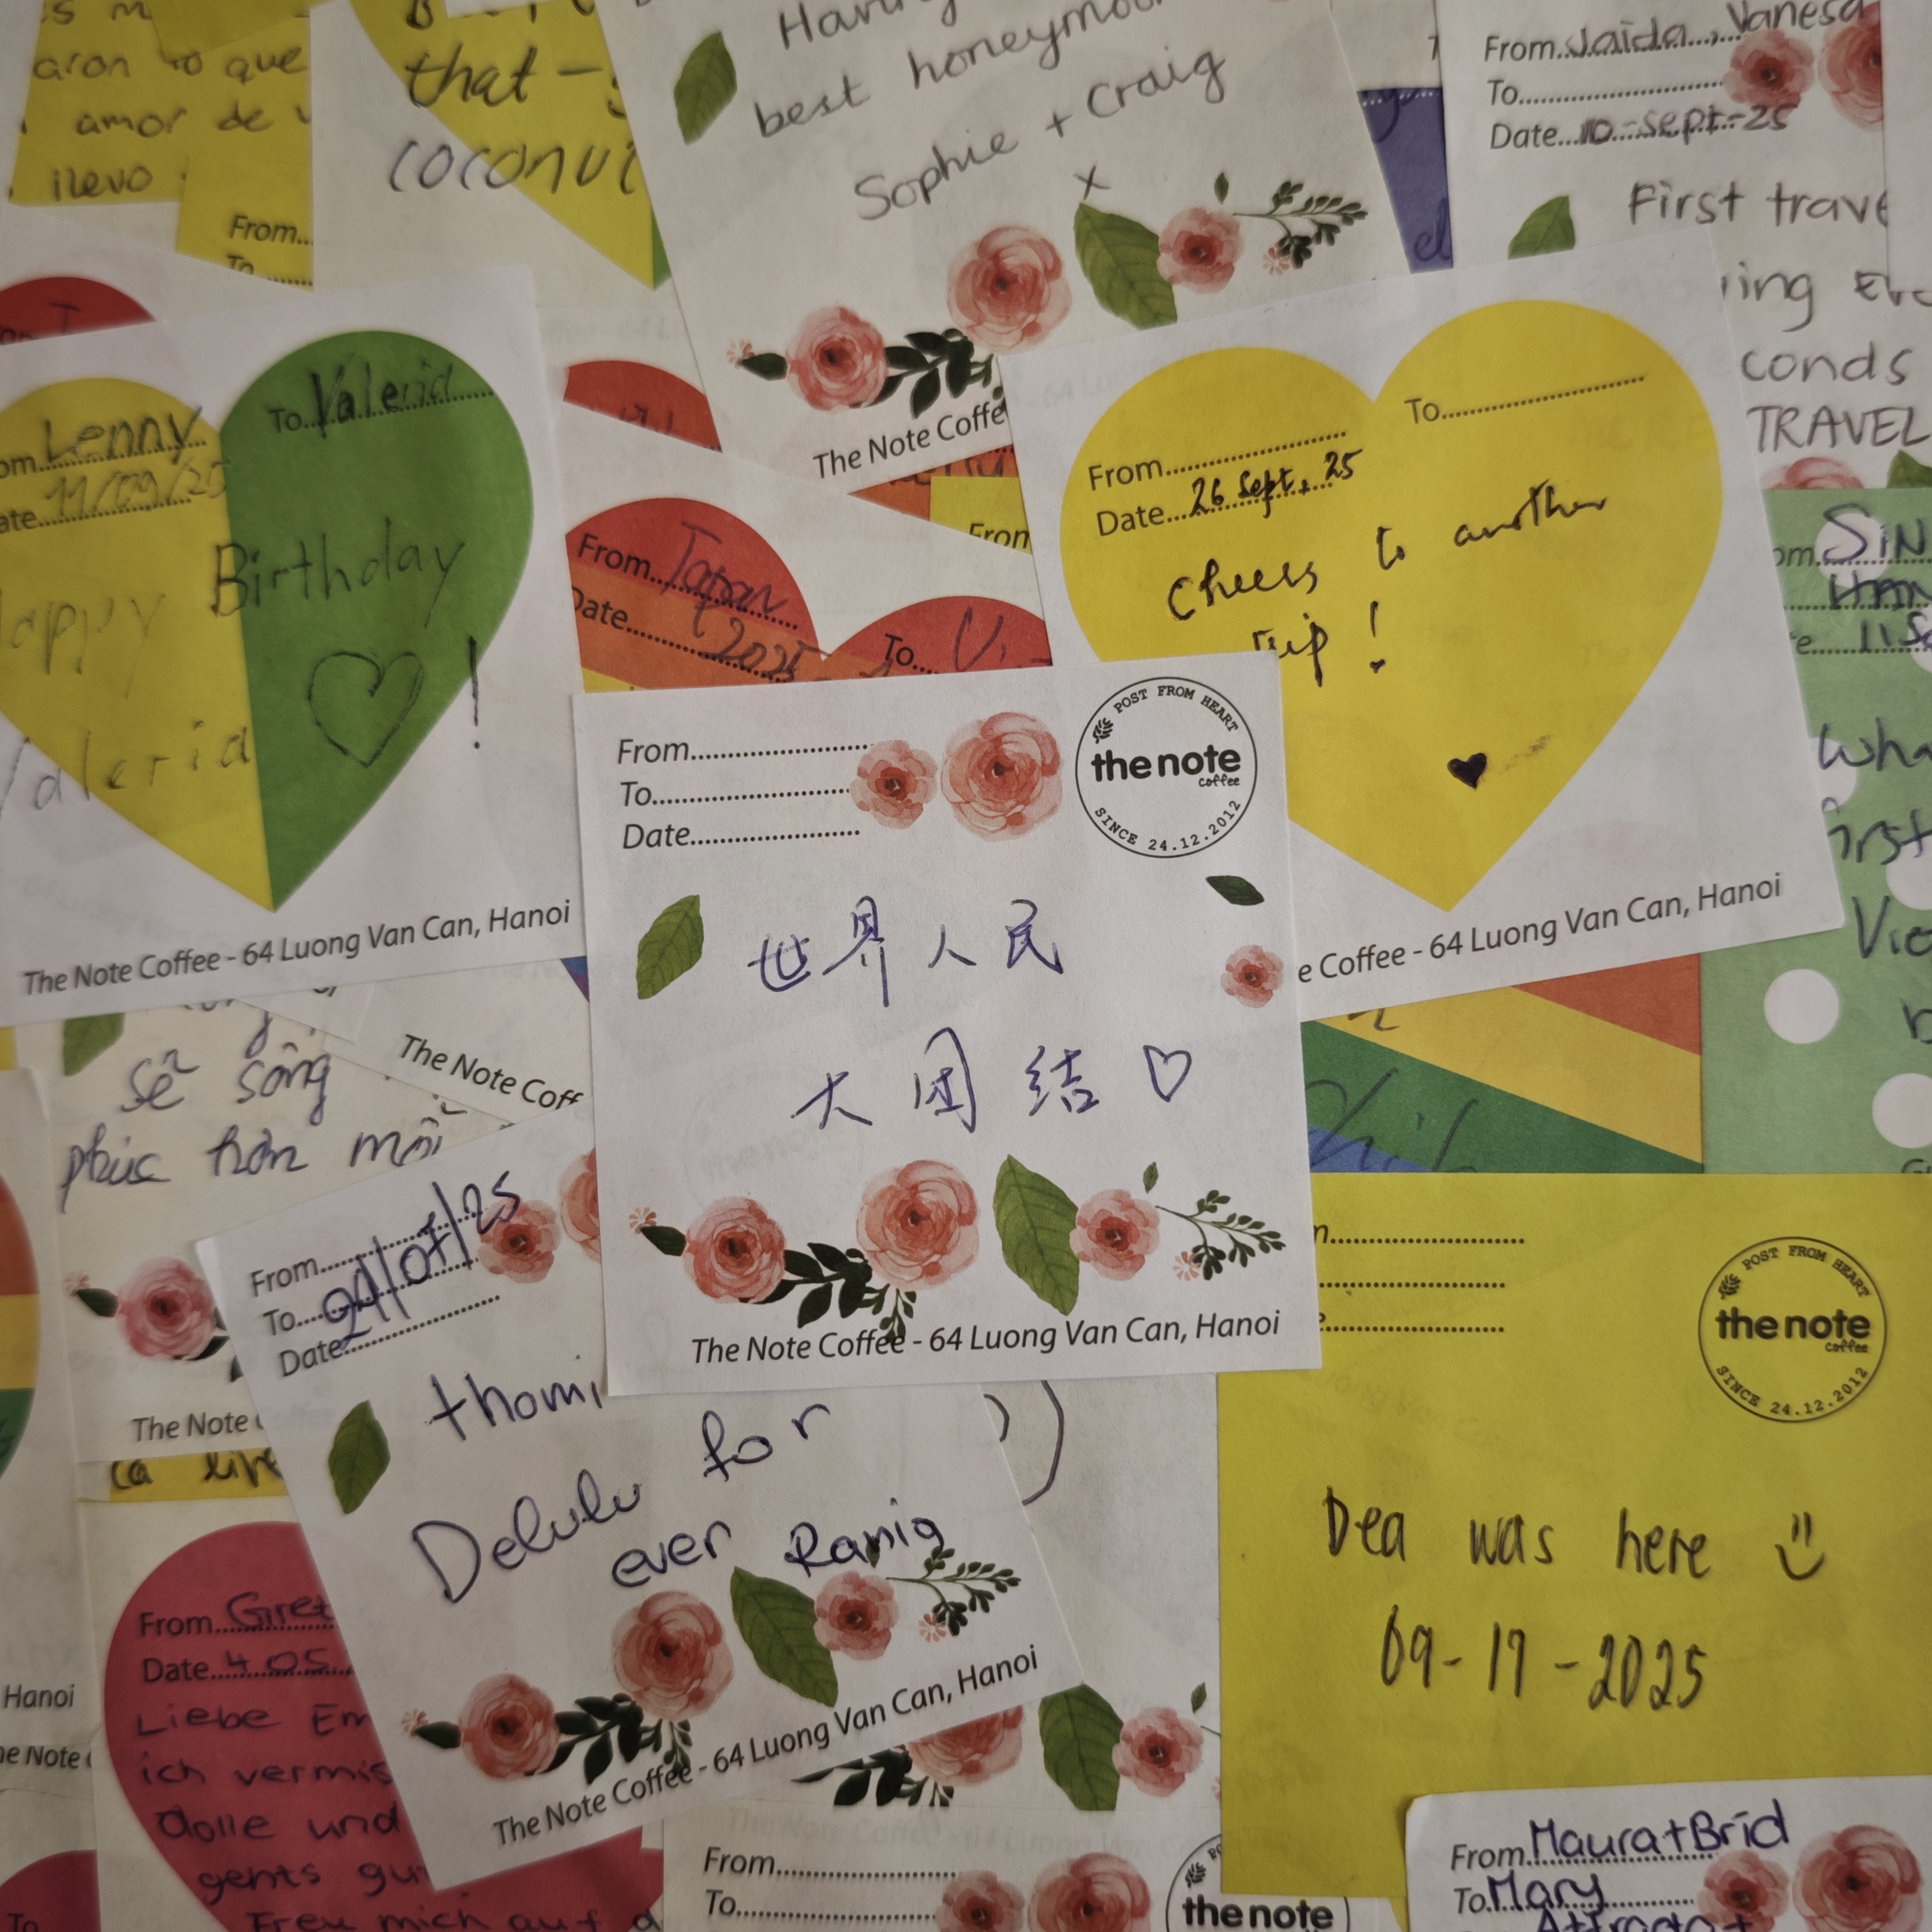 aron lo que
amor de
llevo
From...
To......
that -
coconut
best honeymoo
Sophie + Craig
x
The Note Coffe
From...Jaida..., Vanesa
To..........................
Date...10-sept-25
First trave
ing
conds
TRAVEL
Lenny
11/09/25
To...Valeria
Happy Birthday
Valeria !
The Note Coffee - 64 Luong Van Can, Hanoi
From...Japan
Date...2025
To...
From
From..........................
To..........................
Date...26 Sept, 25
Cheers to another
trip !
e Coffee - 64 Luong Van Can, Hanoi
Wha
irst
Vie
From..........................
To..........................
Date..........................
POST FROM HEART
the note
coffee
SINCE 24.12.2012
世界人民
大团结♡
The Note Coffee - 64 Luong Van Can, Hanoi
sẽ sống
phúc hơn mỗi
The Note Coff
The Note
From..........................
To..........................
Date..........................
Delulu for
ever Rania
The Note Coffee - 64 Luong Van Can, Hanoi
POST FROM HEART
the note
coffee
SINCE 24.12.2012
Dea was here
09-17-2025
From...Gret
Date...4.05.
Liebe Em
ich vermis
dolle und
Freu mich auf d
Hanoi
he Note
To
From..........................
To..........................
the note
From...Maura+Bríd
To...Mary